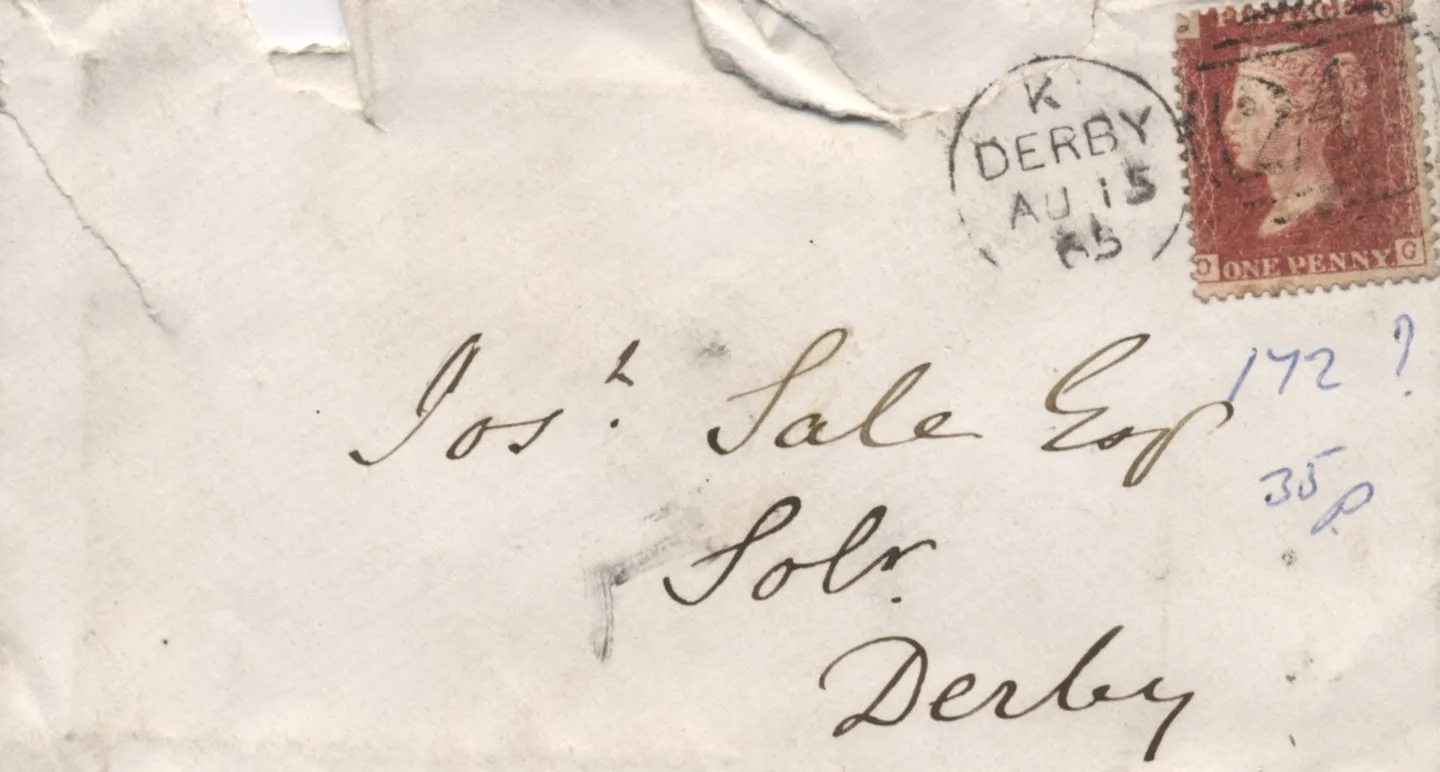 POSTAGE
K
DERBY
AU 15
65
ONE PENNY
O G
Josʰ. Sale Esq
172 ?
35p
Solr.
Derby